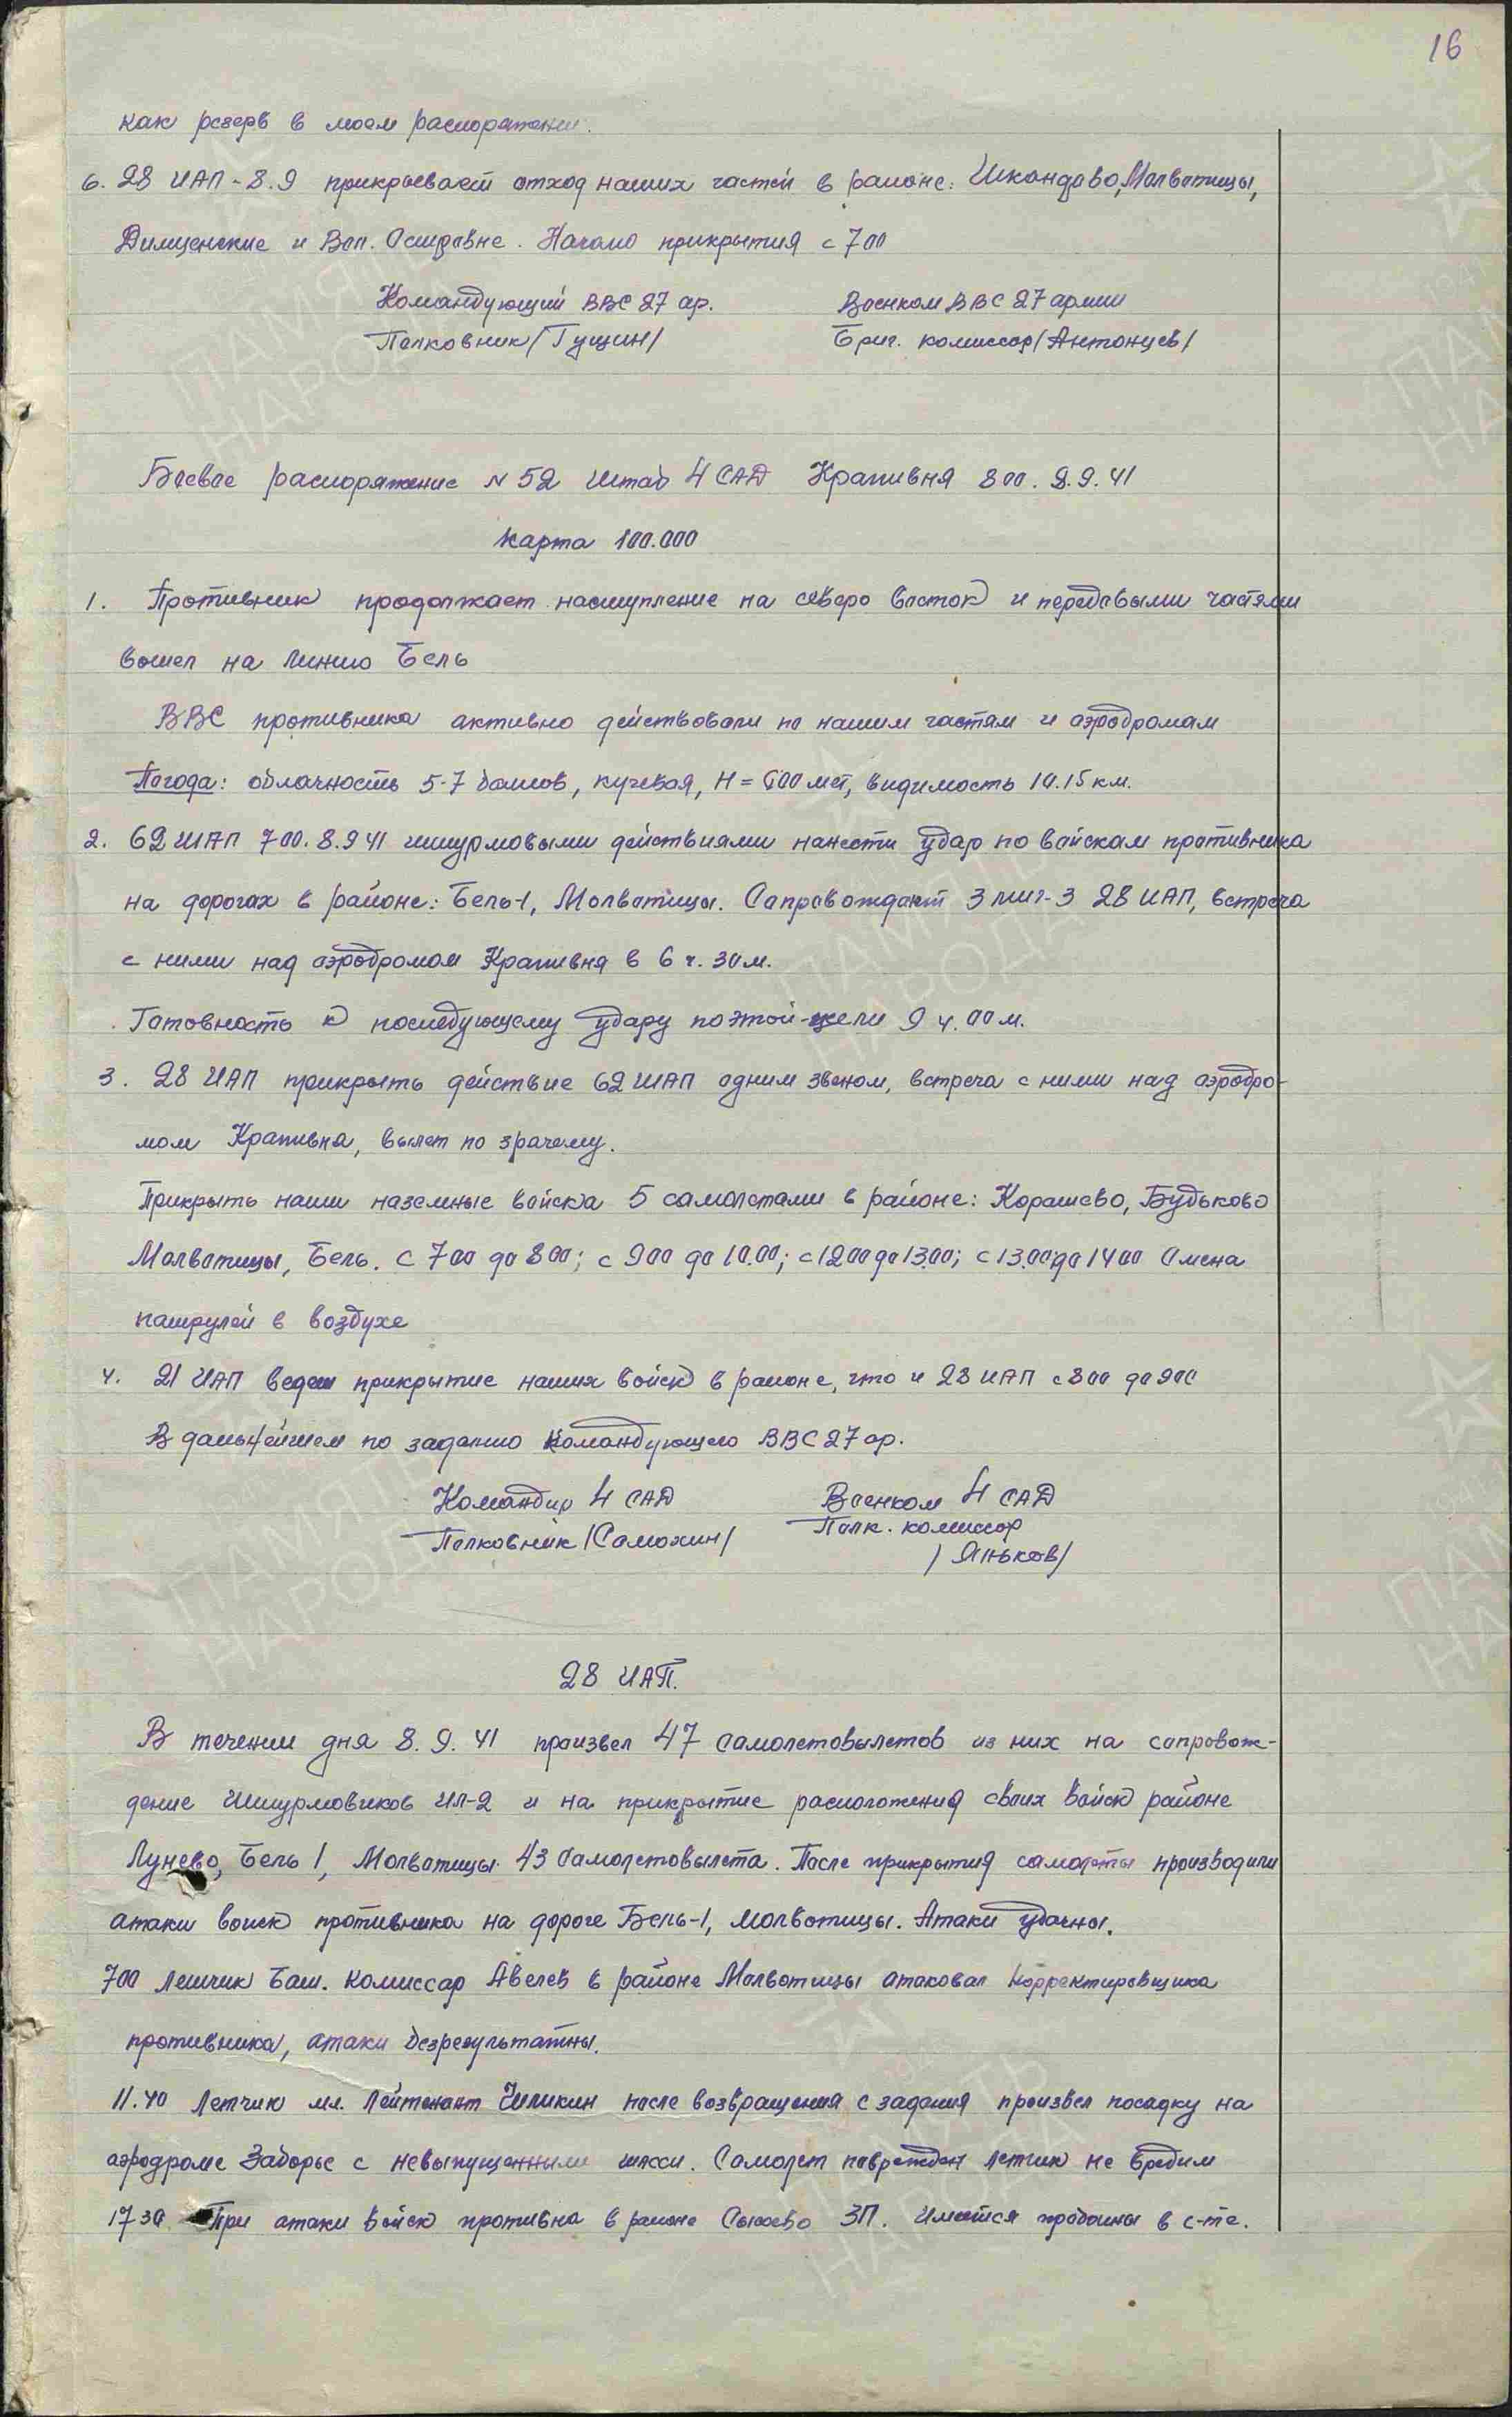 16
как резерв в моем распоряжении.
6. 28 ИАП - 8.9 прикрывает отход наших частей в районе: Шкандово, Молватицы,
и Вел. Начало прикрытия с 700
Командующий ВВС 27 ар. Военком ВВС 27 армии
Полковник /Гущин/ Бриг. комиссар /Антонцев/
Боевое распоряжение N 52 Штаб 4 САД Крапивня 800. 8.9.41
Карта 100.000
1. Противник продолжает наступление на северо восток и передовыми частями
вошел на линию Бель
ВВС противника активно действовали по нашим частям и аэродромам
Погода: облачность 5-7 балов, кучевая, Н = 600 мет, видимость 10.15 км.
2. 62 ШАП 700. 8.9 41 штурмовыми действиями нанести удар по войскам противника
на дорогах в районе: Бель-1, Молватицы. Сапровождают 3 миг-3 28 ИАП, встреча
с ними над аэродромом Крапивня в 6 ч. 30 м.
Готовность к последующему удару по этой-цели 9 ч. 00 м.
3. 28 ИАП прикрыть действие 62 ШАП одним звеном, встреча с ними над аэродро-
мом Крапивна, вылет по зрячему.
Прикрыть наши наземные войска 5 самолетами в районе: Корашево, Будьково
Молватицы, Бель. С 700 до 800; с 900 до 10.00; с 1200 до 13.00; с 13.00 до 1400 Смена
патрулей в воздухе
4. 21 ИАП ведет прикрытие наших войск в районе, что и 28 ИАП с 800 до 900
В дальнейшем по заданию Командующего ВВС 27 ар.
Командир 4 САД Военком 4 САД
Полковник /Самохин/ Полк. комиссар
/Яньков/
28 ИАП.
В течении дня 8. 9. 41 произвел 47 самолетовылетов из них на сапровож-
дение Штурмовиков ил-2 и на прикрытие расположения своих войск районе
Лунево, Бель 1, Молватицы 43 самолетовылета. После прикрытия самолеты производили
атаки воиск противника на дороге Бель-1, Молватицы. Атаки удачны.
700 Летчик Бат. Комиссар Авелев в районе Молватицы атаковал корректировщика
противника, атаки безрезультатны.
11.40 Летчик мл. Лейтенант Чиликин после возвращения с задания произвел посадку на
аэродроме Заборье с невыпущенными шасси. Самолет поврежден летчик не вредим
1730 При атаки войск противна в районе Сысоево ЗП. Имеются пробоины в с-те.